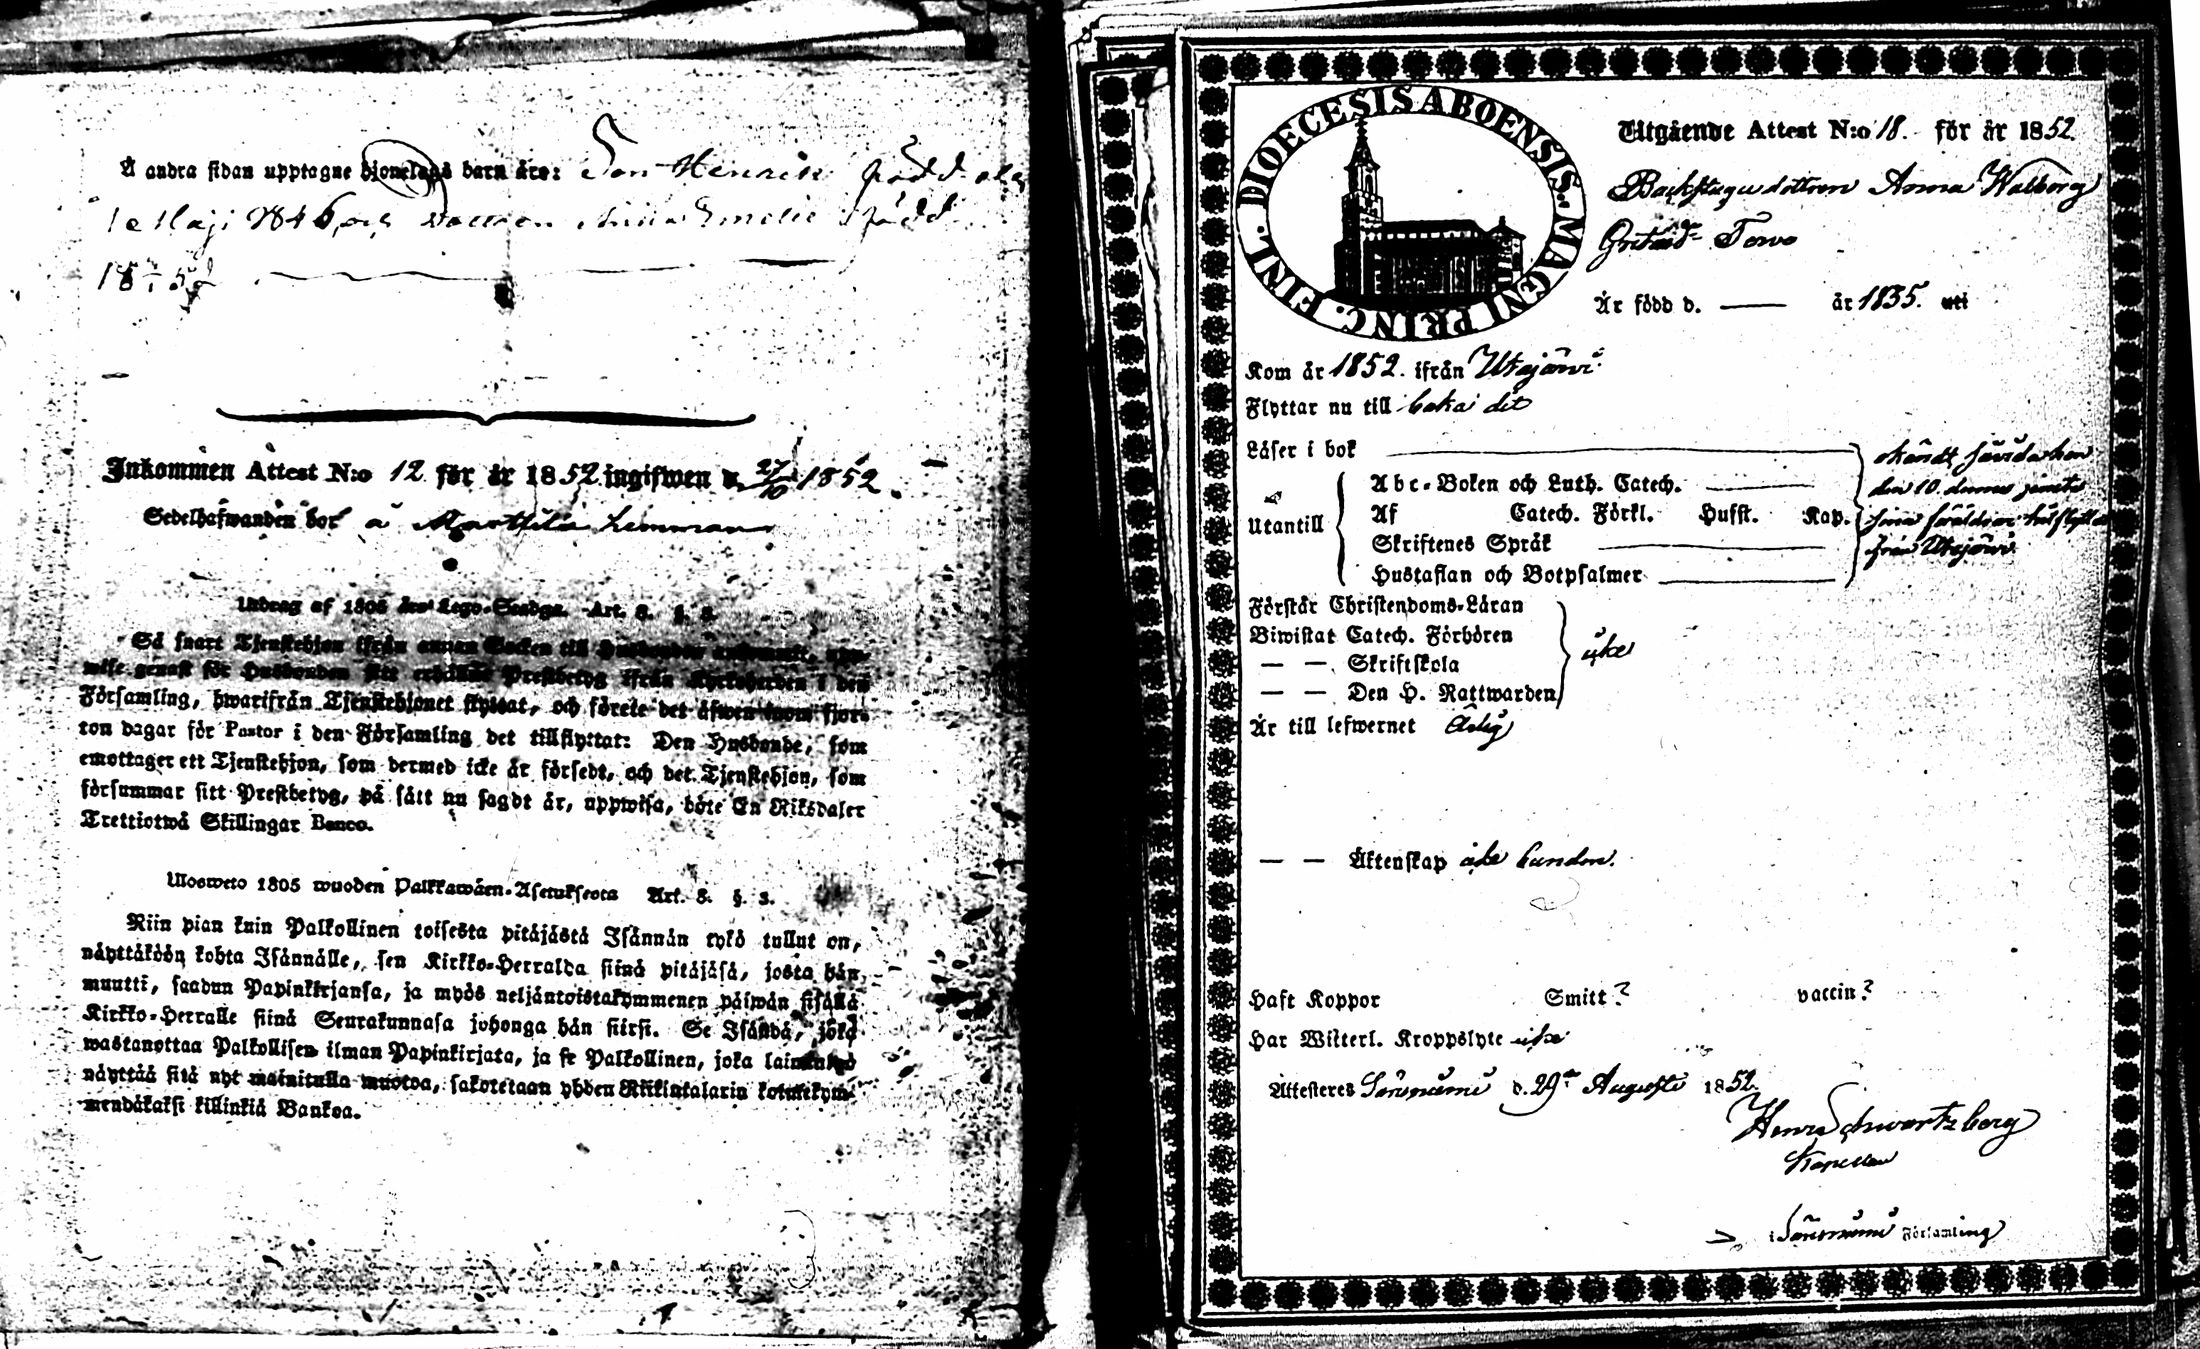 Å andra sidan upptagne hjonelags barn äro: Son Henrik född
Maji 1846, och dottren Anna Emelie född
Inkommen Attest N:o 12 för år 1852 ingifwen d. 27/10 1852.
Sedelhafwanden bor å Marttila hemman
Utdrag af 1805 års Lego-Stadga. Art. 8. §. 3.
Så snart Tjenstehjon ifrån annan Socken till Husbonden ankommit, upp-
wise genast för Husbonden sitt erhållne Prestbetyg ifrån Kyrkoherden i den
Församling, hwarifrån Tjenstehjonet flyttat, och förete det äfwen inom fjor-
ton dagar för Pastor i den Församling det tillflyttat: Den Husbonde, som
emottager ett Tjenstehjon, som dermed icke är försedt, och det Tjenstehjon, som
försummar sitt Prestbetyg, på sätt nu sagdt är, uppwisa, böte En Riksdaler
Trettiotwå Skillingar Banco.
Ulosweto 1805 wuoden Palkkawäen-Asetuksesta Art. 8. §. 3.
Niin pian kuin Palkollinen toisesta pitäjästä Isännän tykö tullut on,
näyttäköön kohta Isännälle, sen Kirkko-Herralda siinä pitäjäsä, josta hän
muutti, saadun Papinkirjansa, ja myös neljäntoistakymmenen päiwän sisällä
Kirkko-Herralle siinä Seurakunnasa johonga hän siirsi. Se Isändä, joka
wastanottaa Palkollisen ilman Papinkirjata, ja se Palkollinen, joka laiminlyö
näyttää sitä nyt mainitulla muotoa, sakotetaan yhden Riikintalarin kolmekym-
mendäkaksi killinkiä Bankoa.
DIOECESIS ABOENSIS MAGNI PRINC. FINL.
Utgående Attest N:o 18. för år 1852.
Backstugu dottren Anna Walborg
Gretasd:r Torvo
Är född d. — år 1835. uti
Kom år 1852. ifrån Utsjärvi
Flyttar nu till baka dit
Läser i bok
Abc-Boken och Luth. Catech.
Utantill Af Catech. Förkl. Husst. Kap.
Skriftenes Språk
Hustaflan och Botpsalmer
okändt, hon
den 10 dennes
sina föräldrar
från Utsjärvi.
Förstår Christendoms-Läran
Biwistat Catech. Förhören
— — Skriftskola
— — Den H. Nattwarden
icke
Är till lefwernet ärlig
— — Äktenskap icke bunden.
Haft Koppor Smitt? vaccin?
Har Wisterl. Kroppslyte icke
Attesteres d. 29de Augusti 1852.
Henr Schwartzberg
Kapellan
i Församling